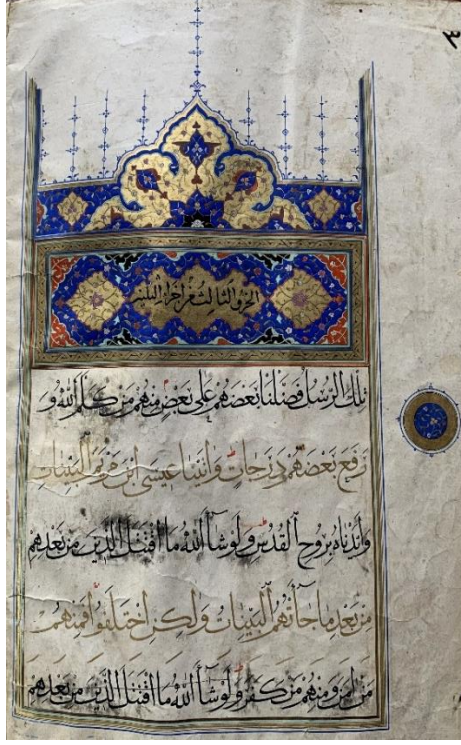 ٣
الجزو الثالث من اجزاء الثلثين
تِلْكَ الرُّسُلُ فَضَّلْنَا بَعْضَهُمْ عَلَى بَعْضٍ مِنْهُمْ مَنْ كَلَّمَ اللَّهُ وَ
رَفَعَ بَعْضَهُمْ دَرَجَاتٍ وَآتَيْنَا عِيسَى ابْنَ مَرْيَمَ الْبَيِّنَاتِ
وَأَيَّدْنَاهُ بِرُوحِ الْقُدُسِ وَلَوْ شَاءَ اللَّهُ مَا اقْتَتَلَ الَّذِينَ مِنْ بَعْدِهِمْ
مِنْ بَعْدِ مَا جَاءَتْهُمُ الْبَيِّنَاتُ وَلَكِنِ اخْتَلَفُوا فَمِنْهُمْ
مَنْ آمَنَ وَمِنْهُمْ مَنْ كَفَرَ وَلَوْ شَاءَ اللَّهُ مَا اقْتَتَلَ الَّذِينَ مِنْ بَعْدِهِمْ